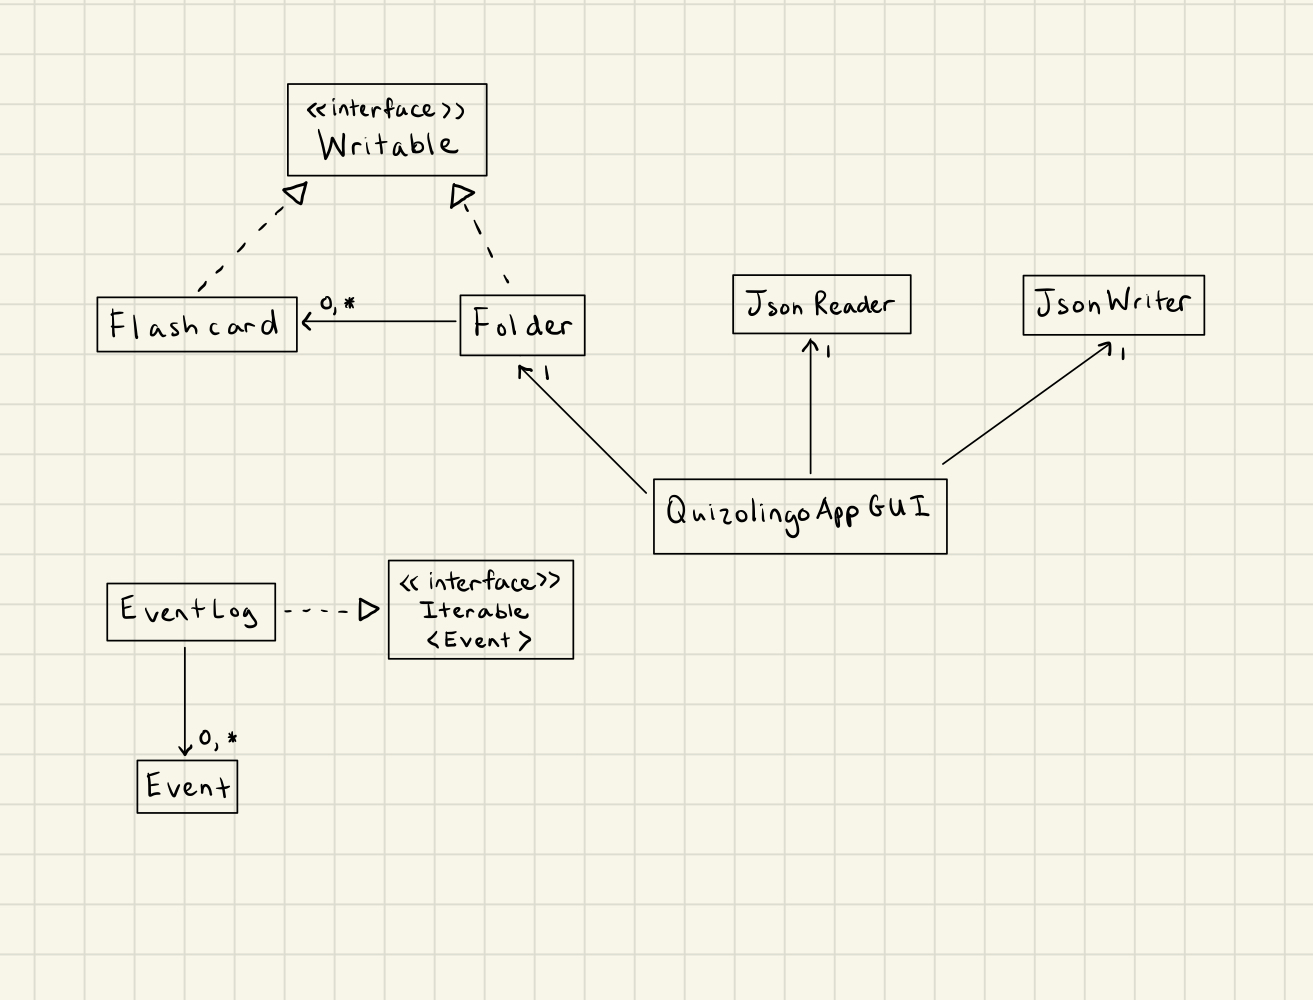 <<interface>>
Writable
Flashcard
0,*
Folder
JsonReader
JsonWriter
1
1
1
QuizolingoAppGUI
EventLog
<<interface>>
Iterable
<Event>
0,*
Event